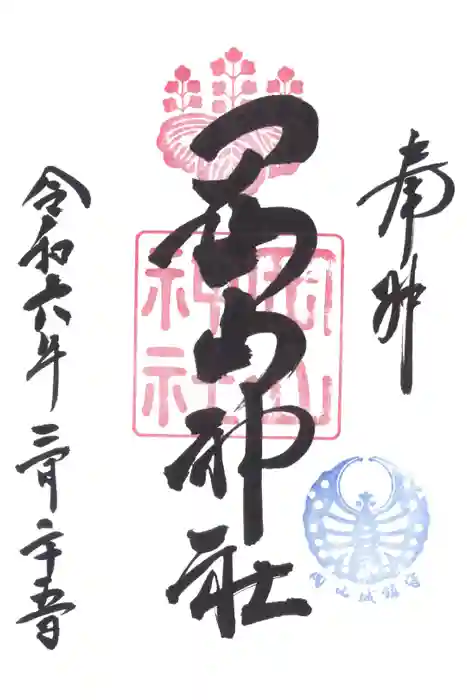 奉拝
岡山神社
岡山
神社
令和六年三月二十五日
岡山城鎮守